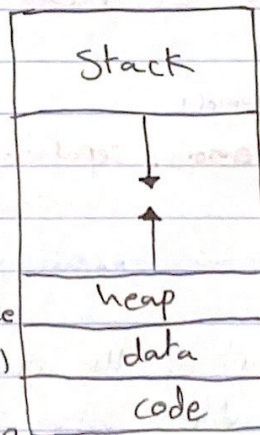 Stack
heap
e
data
)
code